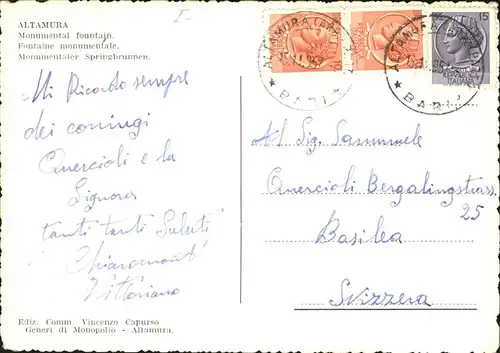 ALTAMURA
Monumental fountain.
Fontaine monumentale.
Monumentaler Springbrunnen.
Mi Ricordo sempre
dei coniugi
Quercioli e la
Signora
tanti tanti Saluti
Chiaromonte
Vittoriano
Ediz. Comm. Vincenzo Capurso
Generi di Monopolio - Altamura.
ALTAMURA
BARI
ALTAMURA
BARI
15
Al Sig.
Quercioli
25
Basilea
Svizzera